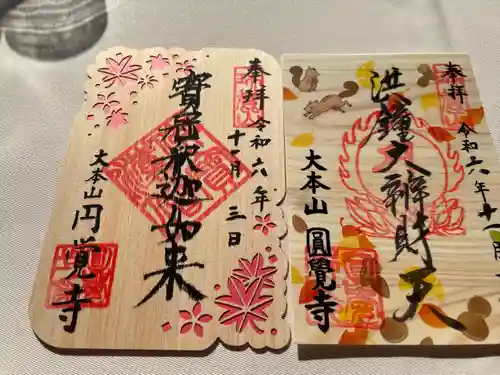 奉拝
令和六年
十一月三日
寳冠釈迦如来
大本山
円覚寺
奉拝
令和六年十一月
洪鐘大辨財天
大本山
圓覺寺